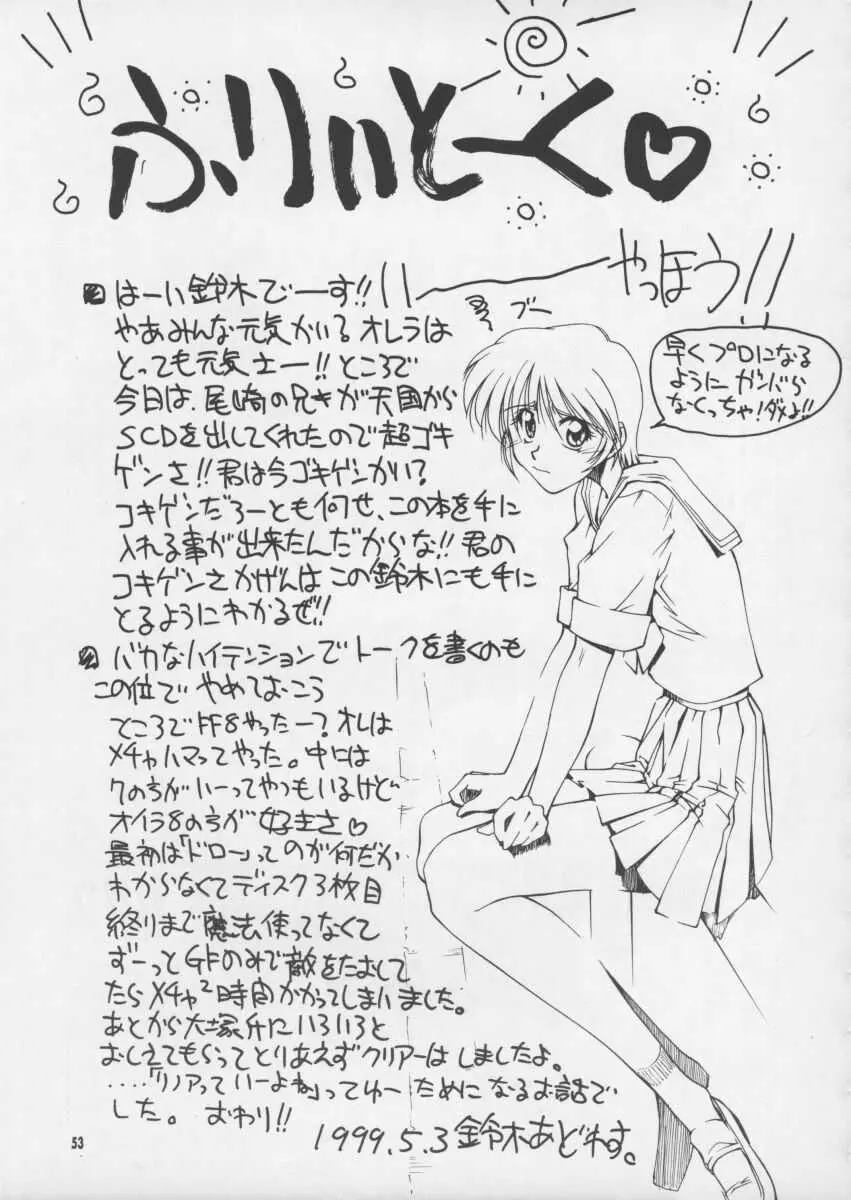 ふりぃとーく♡
やっほう!!
ブー
早くプロになる
ように ガンバら
なくっちゃ!ダメよ!!
はーい鈴木でーす!!
やあみんな元気かい?オレラは
とっても元気さー!!ところで
今日は、尾崎の兄きが天国から
SCDを出してくれたので超ゴキ
ゲンさ!!君は今ゴキゲンかい?
コキゲンだろーとも何せ、この本を手に
入れる事が出来たんだからな!!君の
コキゲンさかげんはこの鈴木にも手に
とるようにわかるぜ!!
バカなハイテンションでトークを書くのも
この位で やめておこう
ところでFF8やったー?オレは
メチャハマってやった。中には
7のちがいーってやつもいるけど
オイラ8のちが好きさ♡
最初は「ドロー」ってのが何だか
わからなくてディスク3枚目
終りまで魔法使ってなくて
ずーっとGFのみで敵をたおして
たらメチャ²時間かかってしまいました。
あとから大塚丘にいろいろと
おしえてもらってとりあえずクリアーはしましたよ。
‥‥「リノアっていーよね」ってゆー ためになるお話で
した。 おわり!!
1999.5.3 鈴木あどれす。
53